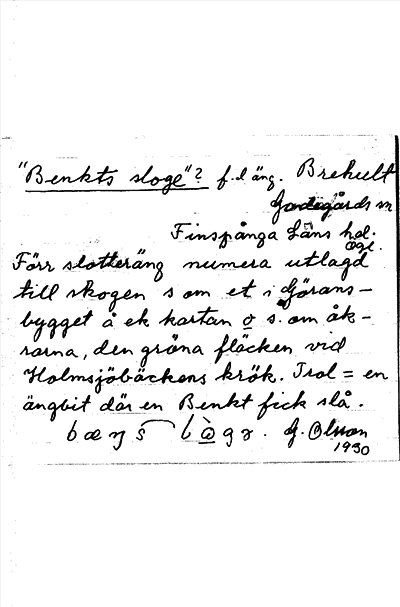 "Benkts sloge"? f.d äng. Brekult
Godegårds sn
Finspånga Läns hd.
Ögl.
Förr slotteräng numera utlagd
till skogen s om et i Görans-
bygget å ek kartan o s. om åk-
rarna, den gröna fläcken vid
Holmsjöbäckens krök. Trol = en
ängbit där en Benkt fick slå.
G. Olsson
1930